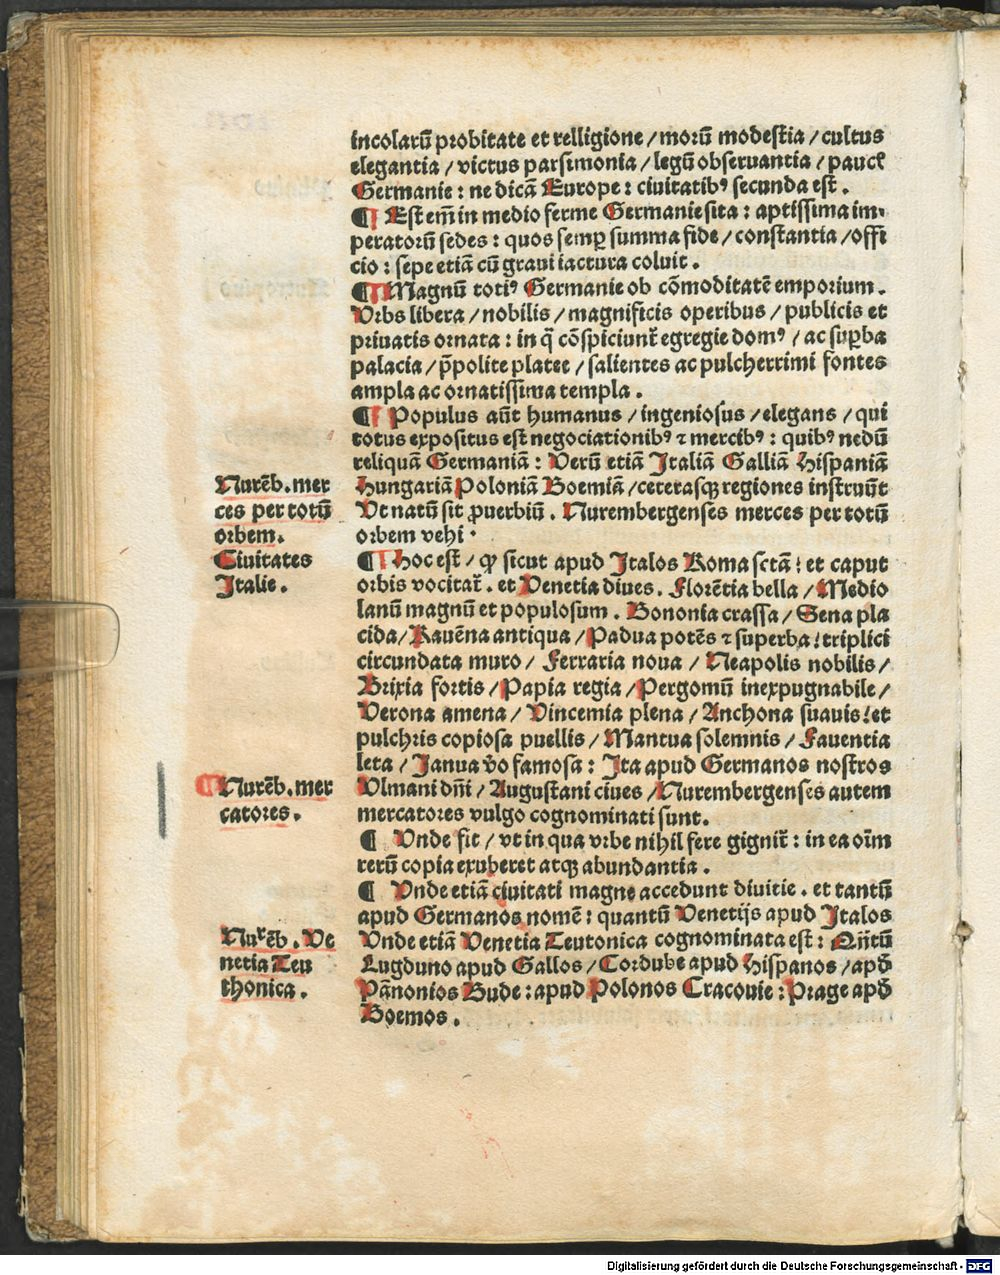 incolarū probitate et relligione / morū modestia / cultus
elegantia / victus parsimonia / legū obseruantia / paucꝭ
Germanie : ne dicā Europe : ciuitatibꝰ secunda est .
¶ Est em̄ in medio ferme Germanie sita : aptissima im-
peratorū sedes : quos semꝑ summa fide / constantia / offi
cio : sepe etiā cū graui iactura coluit .
¶ Magnū totiꝰ Germanie ob cōmoditatē emporium .
Vrbs libera / nobilis / magnificis operibus / publicis et
priuatis ornata : in q̄ cōspiciunt᷑ egregie domꝰ / ac suꝑba
palacia / p̄polite platee / salientes ac pulcherrimi fontes
ampla ac ornatissima templa .
¶ Populus aūt humanus / ingeniosus / elegans / qui
totus expositus est negociationibꝰ ⁊ mercibꝰ : quibꝰ nedū
reliquā Germaniā : Verū etiā Italiā Galliā Hispaniā
Hungariā Poloniā Boemiā / ceterasqꝫ regiones instruūt
Vt natū sit ꝓuerbiū . Nurembergenses merces per totū
orbem vehi .
Nurēb . mer
ces per totū
orbem .
Ciuitates
Italie .
¶ Hoc est / ꝙ sicut apud Italos Roma sctā : et caput
orbis vocitat᷑ . et Venetia diues . Florētia bella / Medio
lanū magnū et populosum . Bononia crassa / Sena pla
cida / Rauēna antiqua / Padua potēs ⁊ superba : triplici
circundata muro / Ferraria noua / Neapolis nobilis /
Brixia fortis / Papia regia / Pergomū inexpugnabile /
Verona amena / Vincemia plena / Anchona suauis : et
pulchris copiosa puellis / Mantua solemnis / Fauentia
leta / Janua v̄o famosa : Ita apud Germanos nostros
Vlmani dn̄i / Augustani ciues / Nurembergenses autem
mercatores vulgo cognominati sunt .
¶ Nurēb . mer
catores .
¶ Vnde fit / vt in qua vrbe nihil fere gignit᷑ : in ea oīm
rerū copia exuberet atqꝫ abundantia .
¶ Vnde etiā ciuitati magne accedunt diuitie . et tantū
apud Germanos nomē : quantū Venetijs apud Italos
Vnde etiā Venetia Teutonica cognominata est : Qn̄tū
Lugduno apud Gallos / Cordube apud Hispanos / apđ
Pānonios Bude : apud Polonos Cracouie : Prage apđ
Boemos .
Nurēb . Ve
netia Teu
thonica .
Digitalisierung gefördert durch die Deutsche Forschungsgemeinschaft - DFG